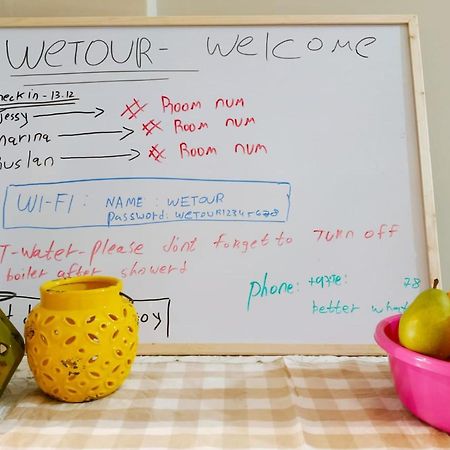 WETOUR - Welcome
heck in - 13.12
jessy # Room num
marina # Room num
Ruslan # Room num
WI-FI : NAME : WETOUR
password: WETOUR12345678
T-Water-please dont forget to Turn off
boiler after showerd
phone: 78
better
oy